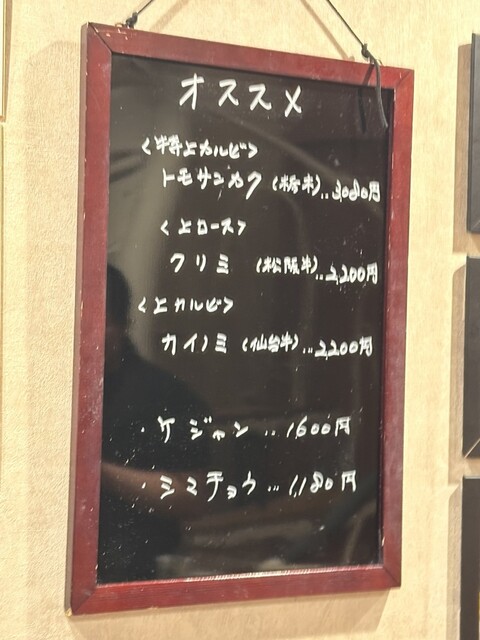 オススメ
<特上カルビ>
トモサンカク ... 3080円
<上ロース>
クリミ (松阪牛) ... 2,200円
<上カルビ>
カイノミ (仙台牛) ... 2,200円
・ケジャン ... 1600円
・シマチョウ ... 1,180円